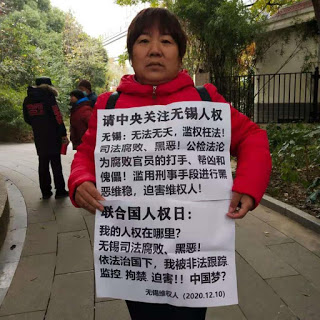 请中央关注无锡人权
无锡:无法无天,滥权枉法!
司法腐败、黑恶!公检法沦
为腐败官员的打手、帮凶和
傀儡!滥用刑事手段进行黑
恶维稳,迫害维权人!
联合国人权日:
我的人权在哪里?
无锡司法腐败、黑恶!
依法治国下,我被非法跟踪
监控 拘禁 迫害!!中国梦?
无锡维权人(2020.12.10)